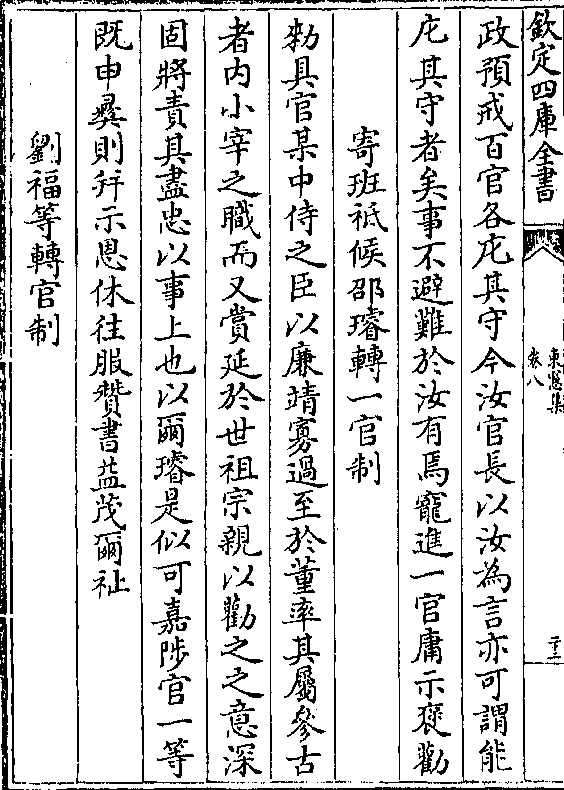 欽定四庫全書
東牕集
卷八
二十二
政預戒百官各庀其守今汝官長以汝為言亦可謂能
庀其守者矣事不避難於汝有焉寵進一官庸示褒勸
寄班祗候邵璿轉一官制
勑具官某中侍之臣以廉靖寡過至於董率其屬參古
者内小宰之職而又賞延於世祖宗親以勸之之意深
固將責其盡忠以事上也以爾璿是似可嘉陟官一等
既申彛則并示恩休往服贊書益茂爾祉
劉福等轉官制